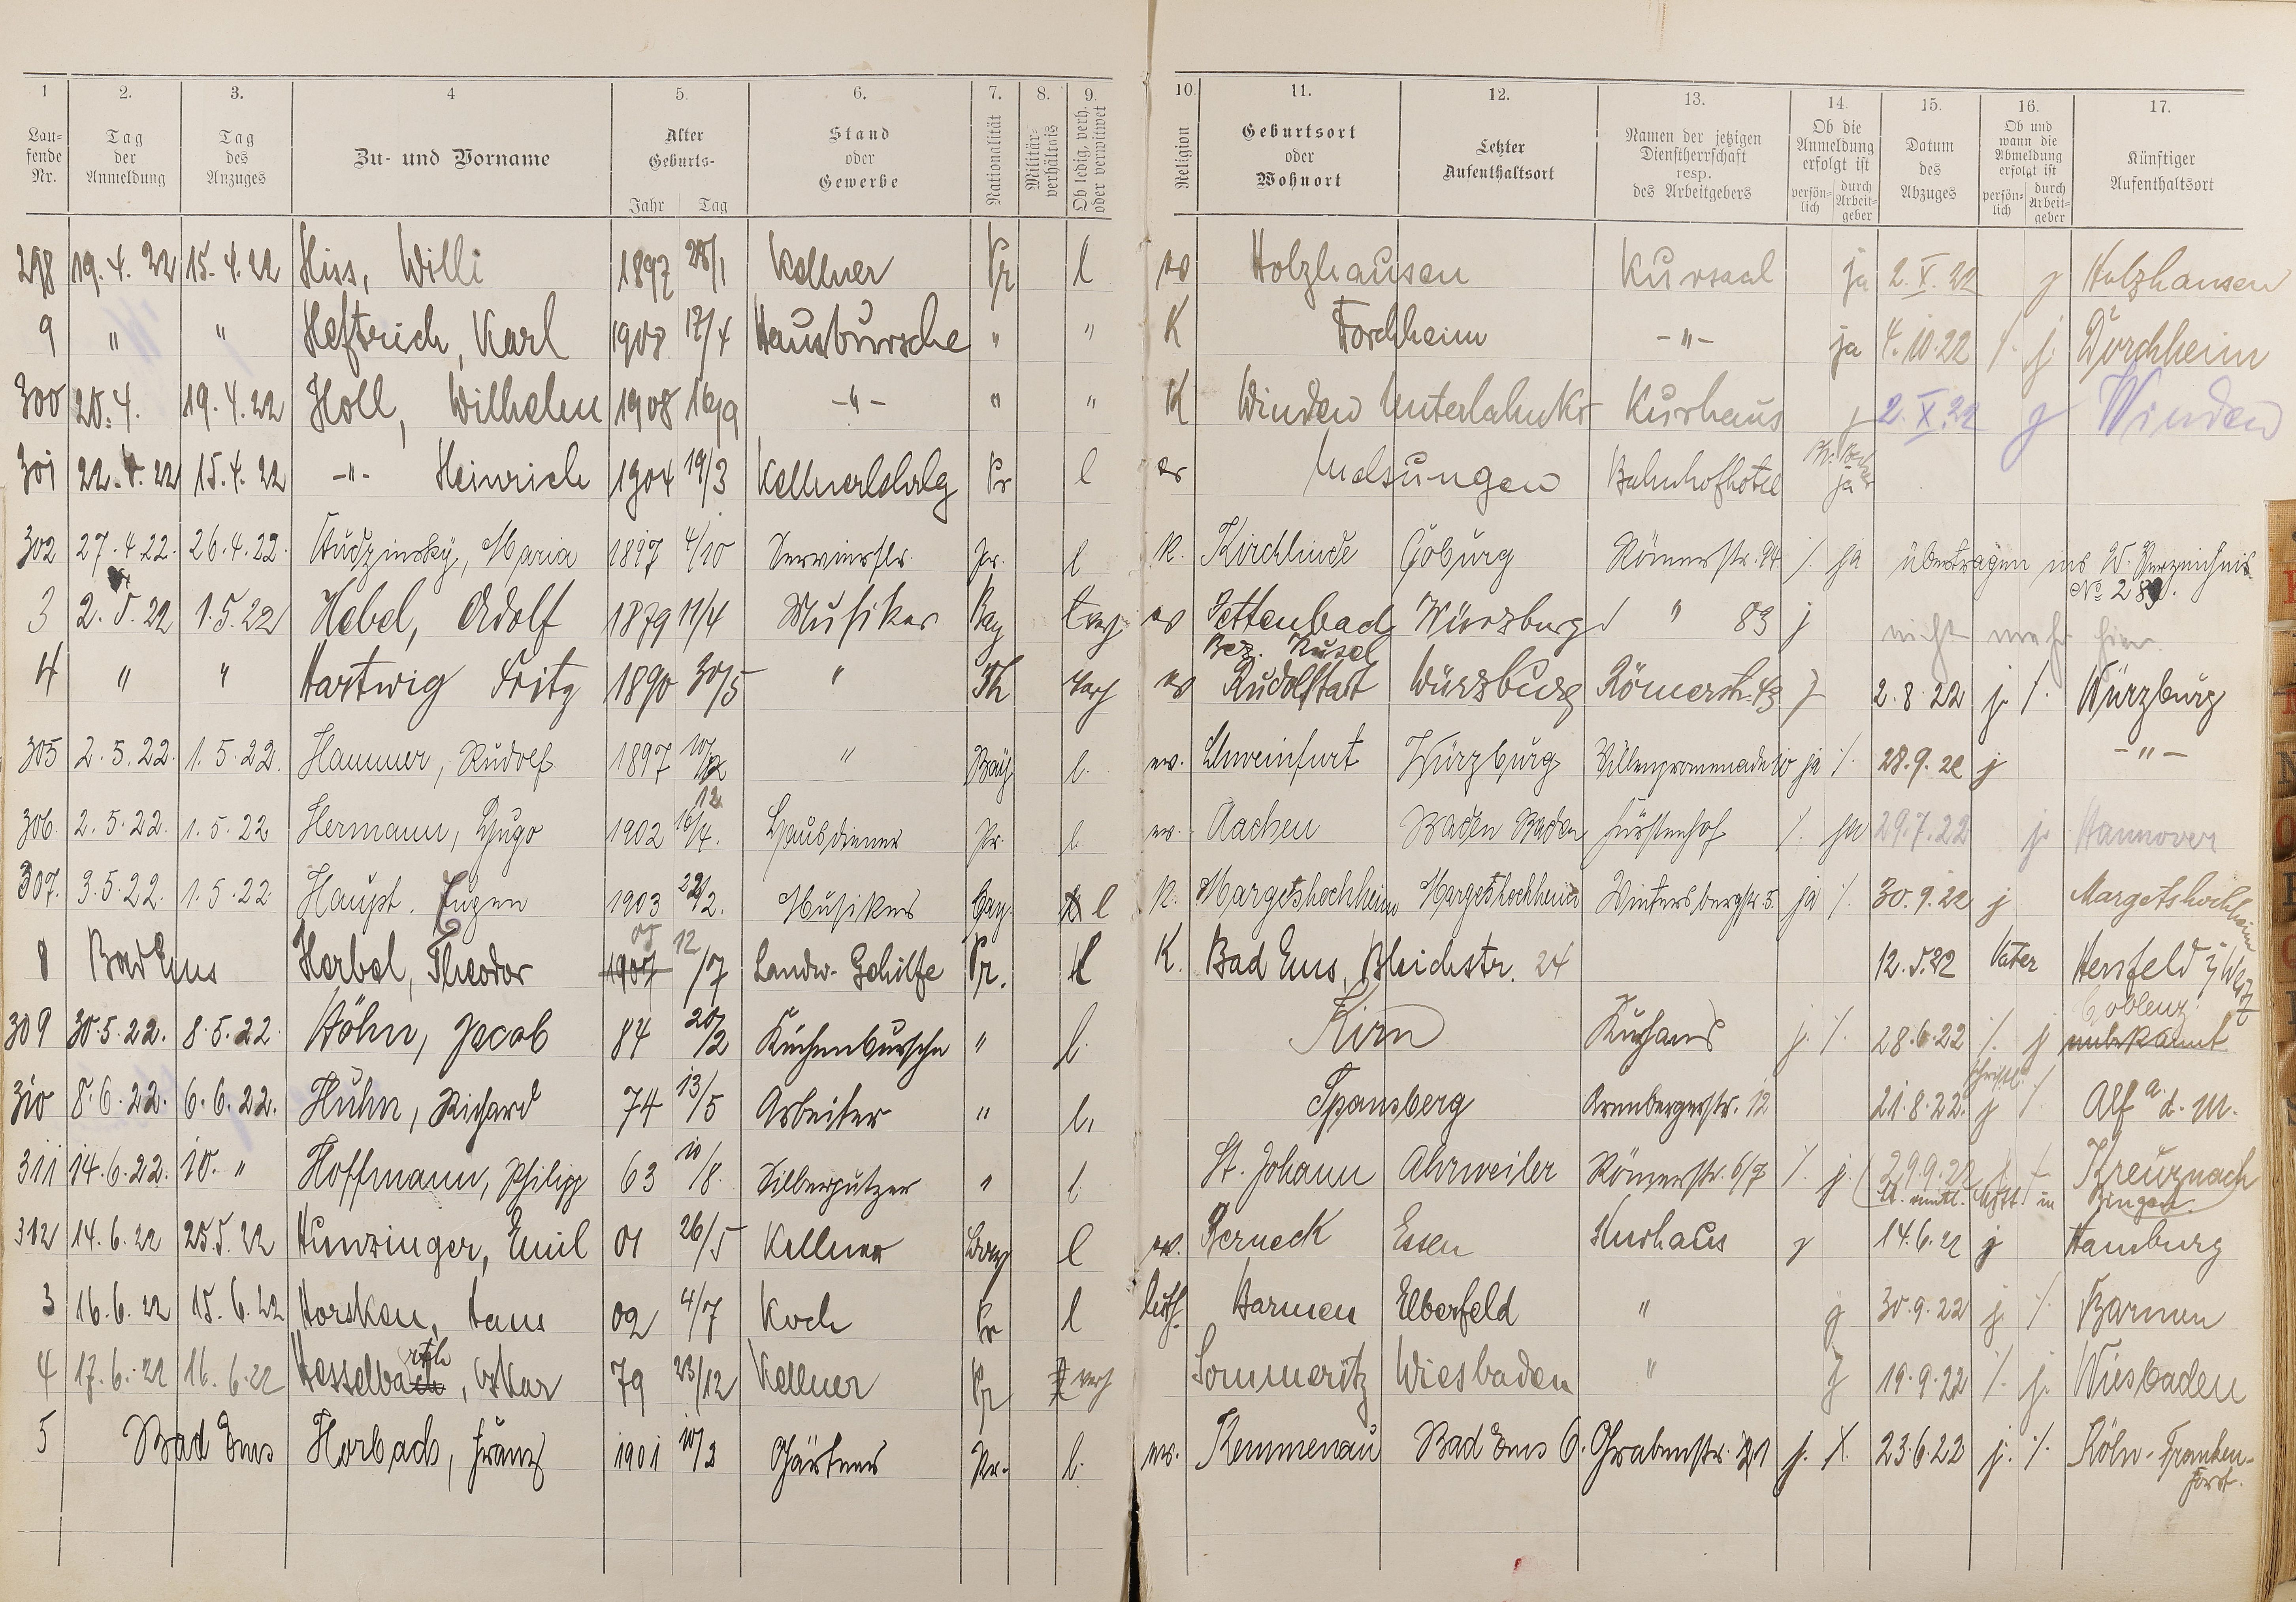 1 2. 3. 4 5. 6. 7. 8. 9. 10. 11. 12. 13. 14. 15. 16. 17.
Lau-
fende
Nr.
Tag
der
Anmeldung
Tag
des
Anzuges
Zu- und Vorname
Alter
Geburts-
Jahr Tag
Stand
oder
Gewerbe
Nationalität
Militär-
verhältnis
Ob ledig, verh.
oder verwitwet
Religion
Geburtsort
oder
Wohnort
Letzter
Aufenthaltsort
Namen der jetzigen
Dienstherrschaft
resp.
des Arbeitgebers
Ob die
Anmeldung
erfolgt ist
persön-
lich
durch
Arbeit-
geber
Datum
des
Abzuges
Ob und
wann die
Abmeldung
erfolgt ist
persön-
lich
durch
Arbeit-
geber
Künftiger
Aufenthaltsort
298 19.4.22 15.4.22 Hiss, Willi 1897 28/1 Kellner Pr l ev Holzhausen Kursaal ja 2.X.22 j Holzhausen
9 " " Heftrich, Karl 17/4 Hausbursche " " K Forchheim -"- ja 4.10.22 /. j. Dorchheim
300 20.4. 19.4.22 Holl, Wilhelm 1908 16/9 -"- " " K Winden Unterlahnkr Kurhaus j 2.X.22 j Winden
301 22.4.22 15.4.22 -"- Heinrich 1904 19/3 Kellnerlehrlg Pr l ev Melsungen Bahnhofhotel ja
302 27.4.22. 26.4.22. Hudzinsky, Maria 1897 4/10 Servierfr. Pr. l K. Kirchlinde Coburg Römerstr. 94 /. ja übertragen ins W. Verzeichnis
No 289.
3 2.5.22 1.5.22 Hebel, Adolf 1879 11/4 Musiker Bay verh ev Jettenbach Würzburg " 83 j nicht mehr hier.
Bez. Kusel
4 " " Hartwig Fritz 1890 30/5 " Th verh ev Rudolstatt Würzburg Römerstr. 43 j 2.8.22 j. /. Würzburg
305 2.5.22. 1.5.22. Hammer, Rudolf 1897 10/12 " Bay l. ev. Schweinfurt Würzburg Villenpromenade 10 ja /. 28.9.22 j -"-
306. 2.5.22. 1.5.22 Hermann, Hugo 1902 16/4. Hausdiener Pr. l ev. Aachen Baden Baden Fürstenhof /. ja 29.7.22 j. Hannover
307. 3.5.22. 1.5.22 Haupt. Eugen 1903 22/2. Musiker Bay. l K. Margetshochheim Margetshochheim Wintersbergstr. 5. ja /. 30.9.22 j Margetshochheim
8 Bad Ems Herbel, Theodor 1907 12/7 Landw. Gehilfe Pr. l K. Bad Ems, Bleichstr. 24 12.5.22 Vater Hersfeld
309 30.5.22. 8.5.22. Höhn, Jacob 84 20/2 Küchenbursche " l. Kirn Kurhaus j. /. 28.6.22 /. j Coblenz
unbekannt
310 8.6.22. 6.6.22. Huhn, Richard 74 13/5 Arbeiter " l. Spansberg Arenbergerstr. 12 21.8.22. schriftl. j /. Alf a. d. M.
311 14.6.22. 10. " Hoffmann, Philipp 63 10/8. Silberputzer " l St. Johann Ahrweiler Römerstr. 6/7 /. j. 29.9.22 Kreuznach
Bingen.
312 14.6.22 25.5.22 Hunzinger, Emil 01 26/5 Kellner Bay l ev. Berneck Essen Kurhaus j 14.6.22 j Hamburg
3 16.6.22 15.6.22 Horsken, Hans 02 4/7 Koch Pr l luth. Barmen Elberfeld " j 30.9.22 j. /. Barmen
4 17.6.22 16.6.22 Hesselbarth, Oskar 79 23/12 Kellner Pr verh Sommeritz Wiesbaden " j 19.9.22 /. j. Wiesbaden
5 Bad Ems Horbach, Franz 1901 10/2 Gärtner Pr. l. ev. Kemmenau Bad Ems Grabenstr. 21 j. /. 23.6.22 j. /. Köln-Franken-
forst.